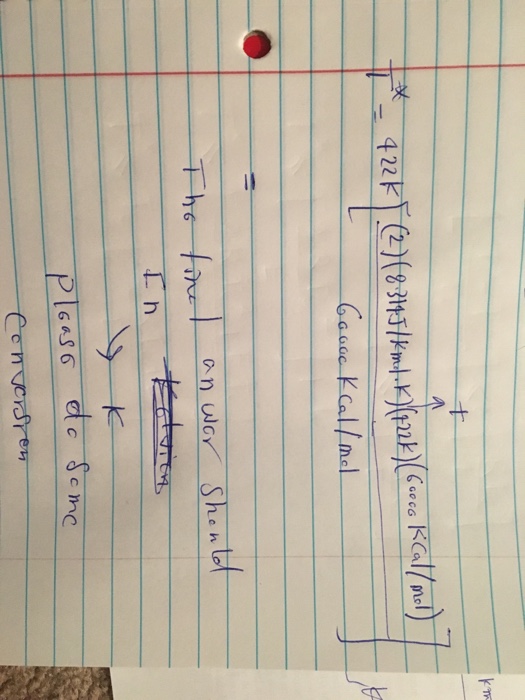 +
T* = 422K [ (2)(8.314J/kmol.K)(422K)(60000 KCal/mol)
60000 KCal/mol ]
=
The final answer should
In
↘ K
Please do some
Conversion